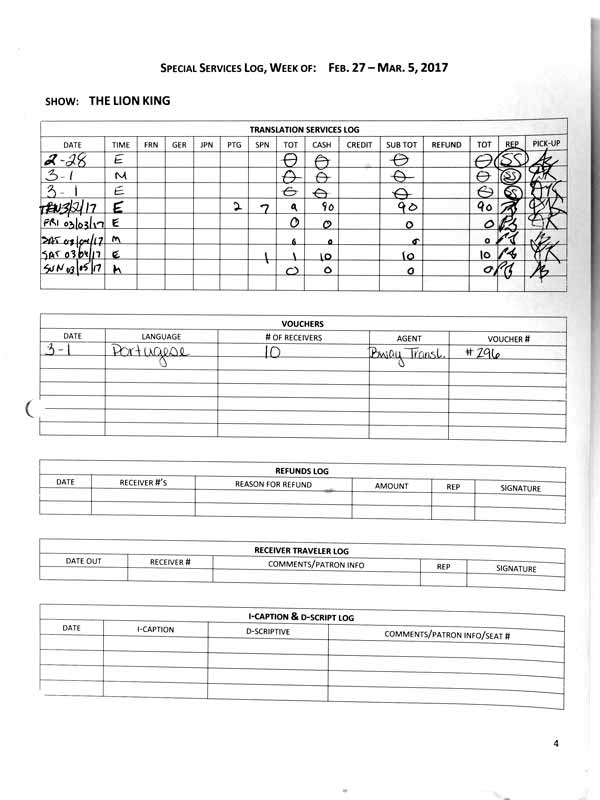 SPECIAL SERVICES LOG, WEEK OF: FEB. 27 – MAR. 5, 2017
SHOW: THE LION KING
TRANSLATION SERVICES LOG
DATE TIME FRN GER JPN PTG SPN TOT CASH CREDIT SUB TOT REFUND TOT REP PICK-UP
2-28 E 0 0 0 0 SS
3-1 M 0 0 0 0 SS
3-1 E 0 0 0 0 SS
3/2/17 E 2 7 9 90 90 90
FRI 03/03/17 E 0 0 0 0
SAT 03/04/17 M 0 0 0 0
SAT 03/04/17 E 1 1 10 10 10
SUN 03/05/17 M 0 0 0 0
VOUCHERS
DATE LANGUAGE # OF RECEIVERS AGENT VOUCHER #
3-1 Portugese 10 Bway Transl. #296
REFUNDS LOG
DATE RECEIVER #'S REASON FOR REFUND AMOUNT REP SIGNATURE
RECEIVER TRAVELER LOG
DATE OUT RECEIVER # COMMENTS/PATRON INFO REP SIGNATURE
I-CAPTION & D-SCRIPT LOG
DATE I-CAPTION D-SCRIPTIVE COMMENTS/PATRON INFO/SEAT #
4